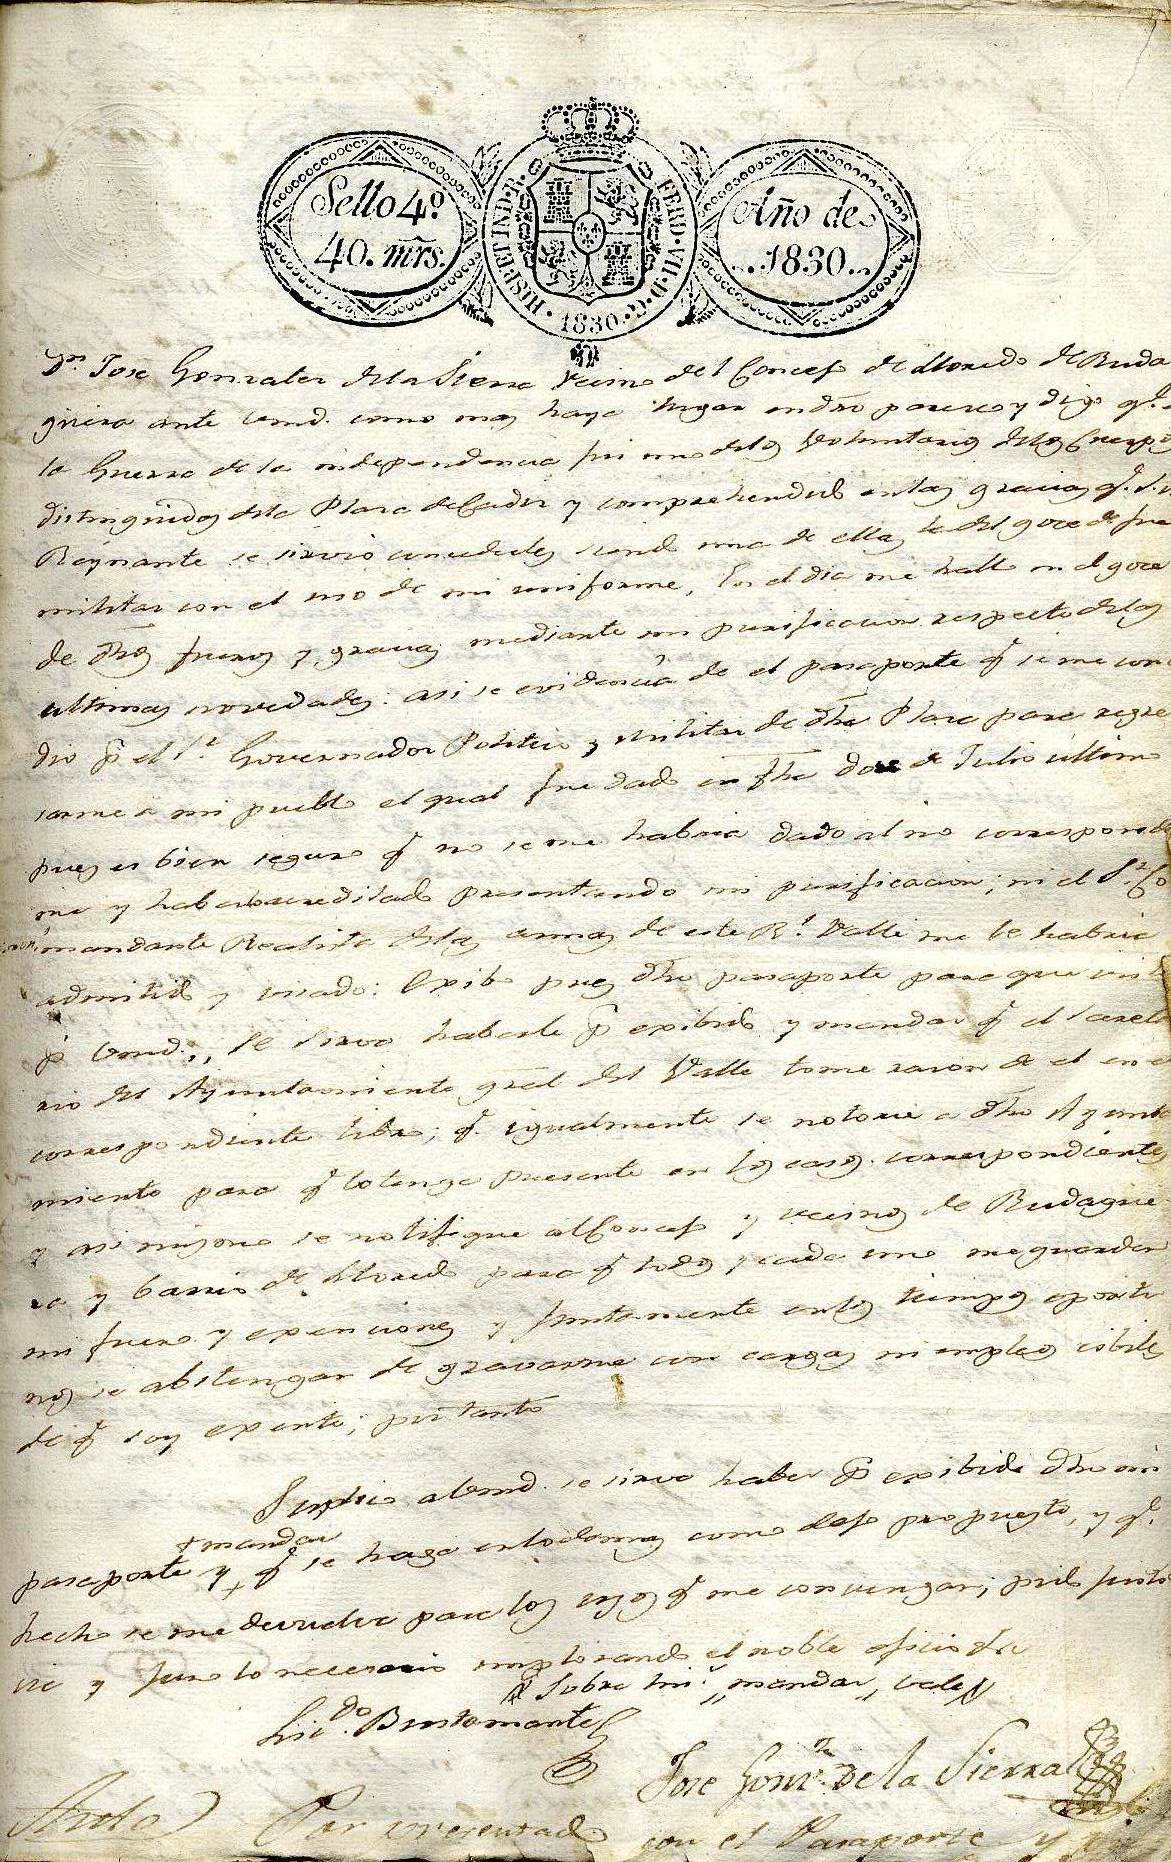 Sello 4º
40. mrs.
HISP. ET IND. R. FERD. VII. D. G.
1830.
Año de
1830
Dn. Jose Gonzalez dela Sierra vecino del Concejo de Lloredo de Buda
guera ante vmd. como mas haya lugar en dro parezco y digo qe. en
la Guerra de la independencia fui uno delos Voluntarios delos Cuerpos
distinguidos dela Plaza de Cadiz y comprehendido enlas gracias qe. S.M.
Reynante se sirvio concederles siendo una de ellas la del goce de fuero
militar con el uso de mi uniforme, En el dia me hallo en el goce
de dhos fueros y gracias mediante mi purificacion respecto delas
ultimas novedades: asi se evidencia de el pasaporte q se me conce
dio p el Sr. Governador Politico y Militar de dha Plaza para regre
sarme a mi pueblo el qual fue dado en fha doze de Julio ultimo
pues es bien seguro q no se me habria dado al no corresponder
me y haberlo acreditado presentando mi purificacion; ni el Sr. Co
mandante Realista delas armas de este Rl. Valle me le habria
admitido y visado: Exibo pues dho pasaporte para que visto
p vmd., se sirva haberle p exibido y mandar q el Secreta
rio del Ayuntamiento gral del Valle tome razon de el en el
correspondiente libro; q. igualmente se notorie a dho Ayunta
miento para q lo tenga presente en los casos correspondientes
y asi mismo se notifique al Concejo y vecinos de Budague
ra y barrio de Lloredo para q todos y cada uno me guarden
mi fuero y exenciones y juntamente enlos tiempos oportu
nos se abstengan de gravarme con cargas ni empleos cibiles
de q soy exento; por tanto
Suplico a vmd. se sirva haber p exibido dho mi
+ mandar
pasaporte y + q se haga entodo mas como dejo propuesto, y qe.
hecho se me devuelva para los usos q me convengan; pido justi
cia y juro lo necesario implorando el noble oficio de
Sobre lin.s "mandar" vale
Licdo. Bustamante
Jose Gonz. de la Sierra
Auto Por presentado con el Pasaporte y